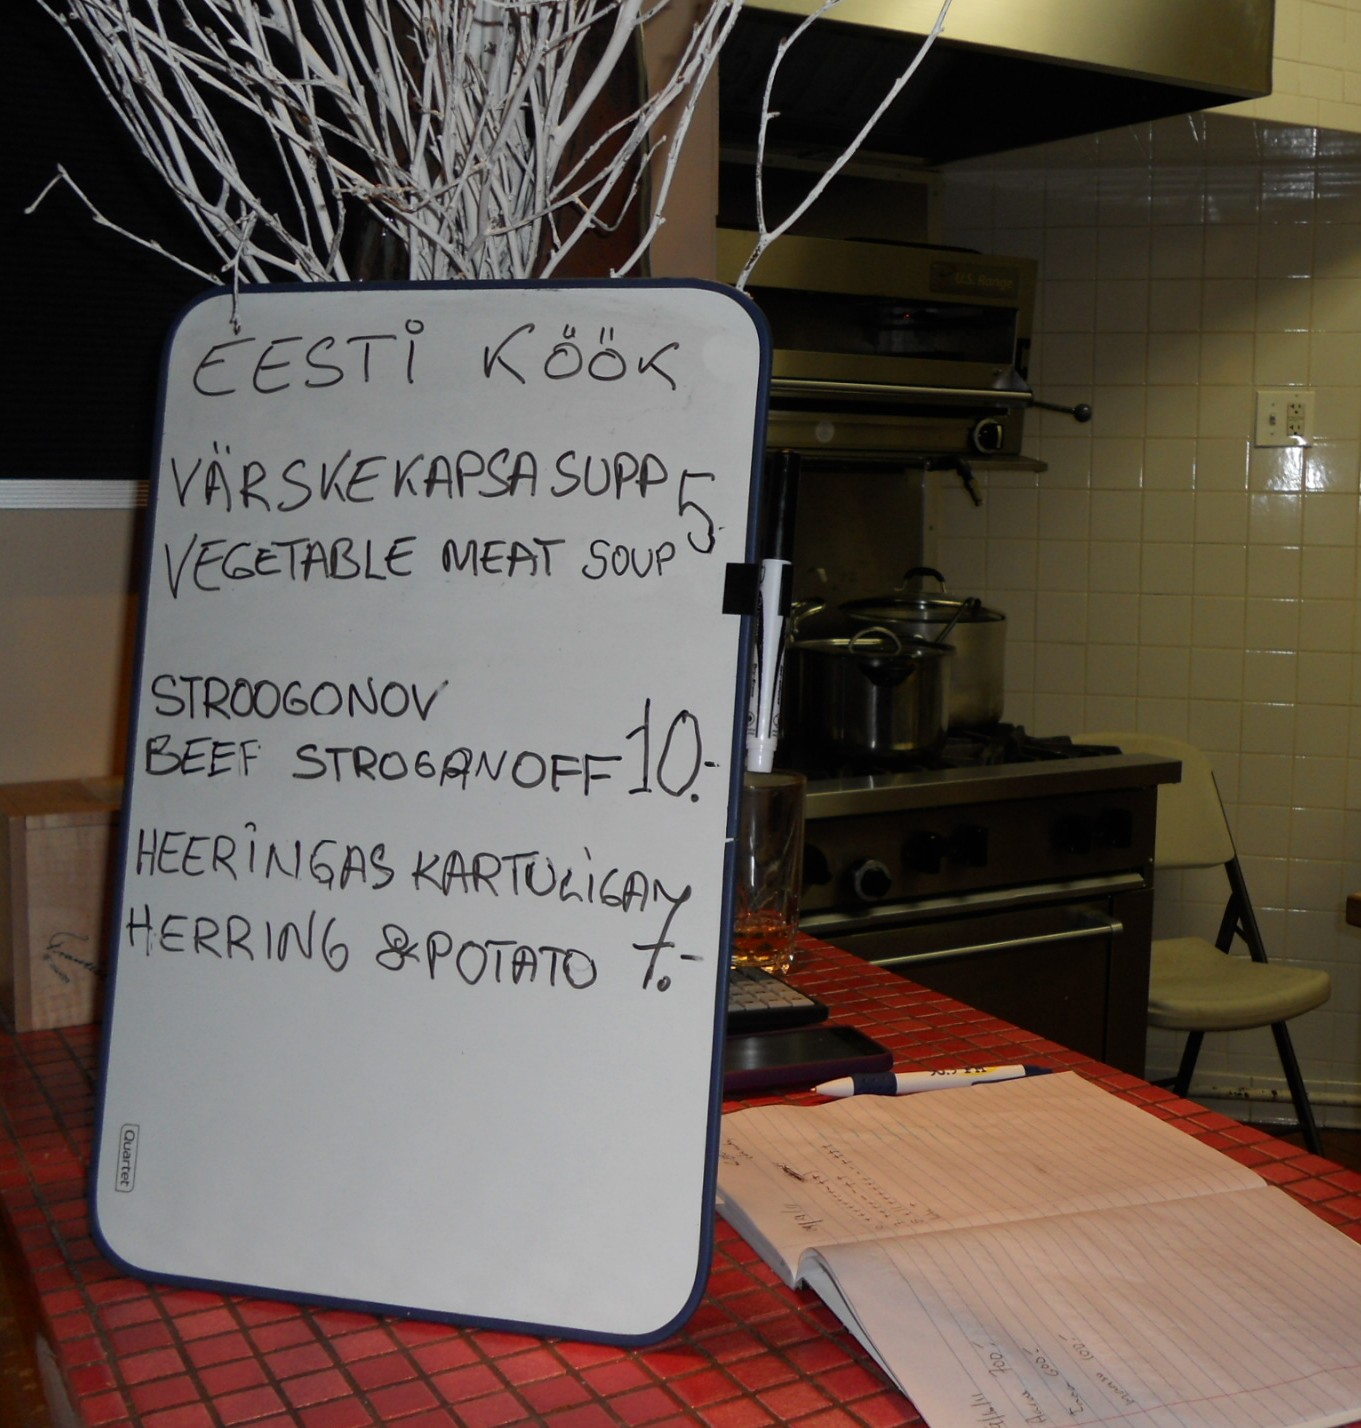 EESTI KÖÖK
VÄRSKEKAPSA SUPP 5.
VEGETABLE MEAT SOUP
STROOGONOV
BEEF STROGANOFF 10.-
HEERINGAS KARTULIGAY
HERRING & POTATO 7.-
Quartet
U.S. Range